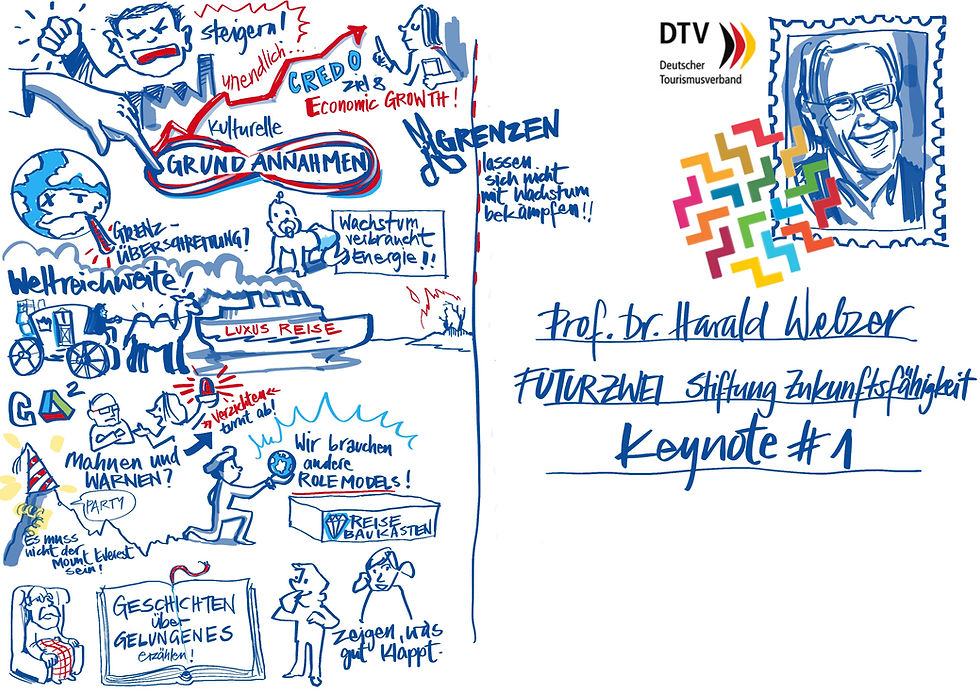 steigern!
unendlich...
CREDO
Economic GROWTH!
Kulturelle
GRUNDANNAHMEN
GRENZEN
lassen
sich nicht
mit Wachstum
bekämpfen!!
GRENZ-
ÜBERSCHREITUNG?
Wachstum
verbraucht
Energie!!
Weltreichweite!
LUXUS REISE
"Verzichten"
turnt ab!
Mahnen und
WARNEN?
Wir brauchen
andere
ROLE MODELS!
PARTY
Es muss
nicht der
Mount Everest
sein!
REISE
BAUKASTEN
GESCHICHTEN
über
GELUNGENES
erzählen!
zeigen, was
gut klappt.
DTV
Deutscher
Tourismusverband
Prof. Dr. Harald Welzer
FUTURZWEI Stiftung Zukunftsfähigkeit
Keynote #1